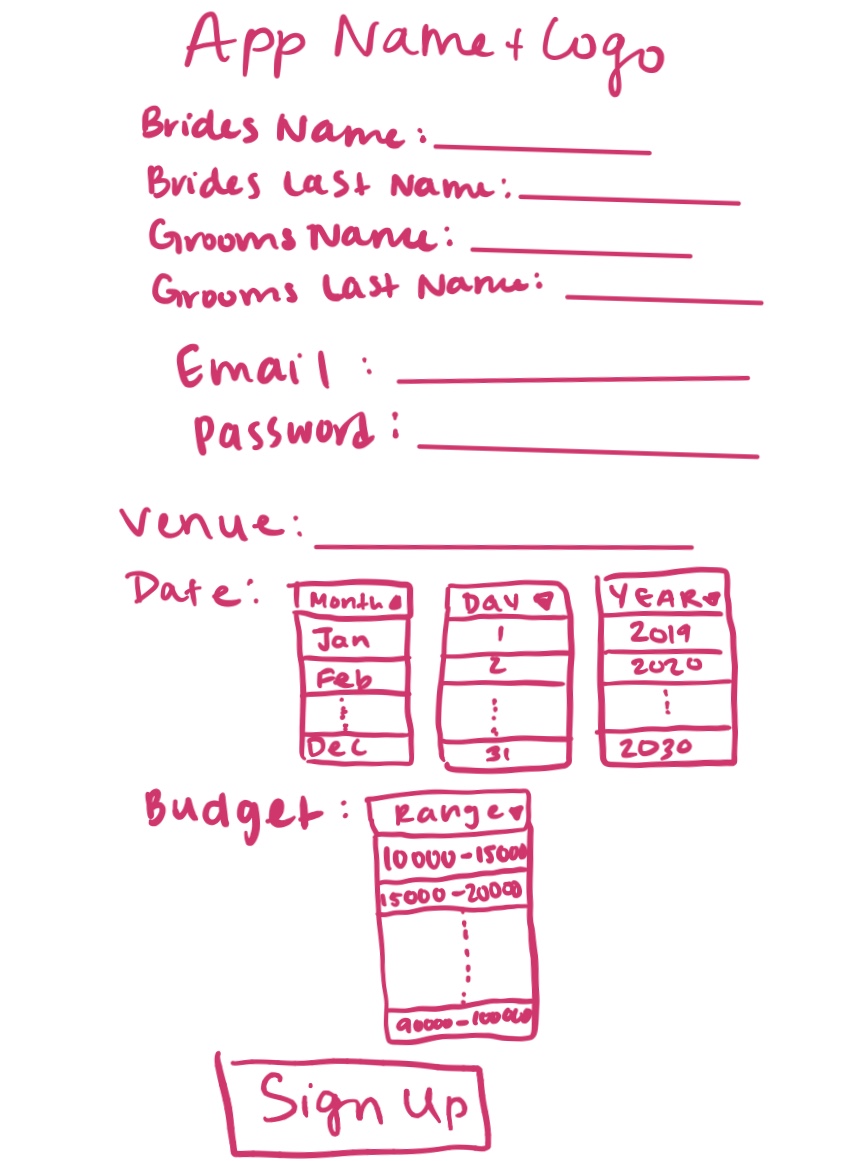 App Name + Logo
Brides Name:
Brides Last Name:
Grooms Name:
Grooms Last Name:
Email:
Password:
Venue:
Date: Month Day YEAR
Jan 1 2019
Feb 2 2020
Dec 31 2030
Budget: Range
10000-15000
15000-20000
90000-100000
Sign Up